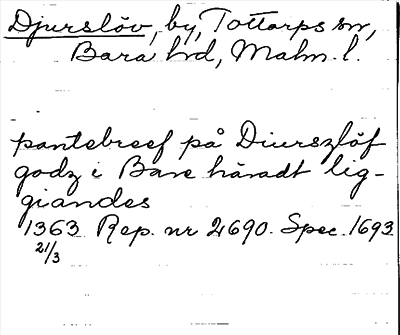 Djurslöv, by, Tottarps sn,
Bara hd, Malm. l.
pantebreef på Diurszlöf
godz i Bare häradt lig-
giandes
1363 Rep. nr 2690. Spec. 1693
21/3